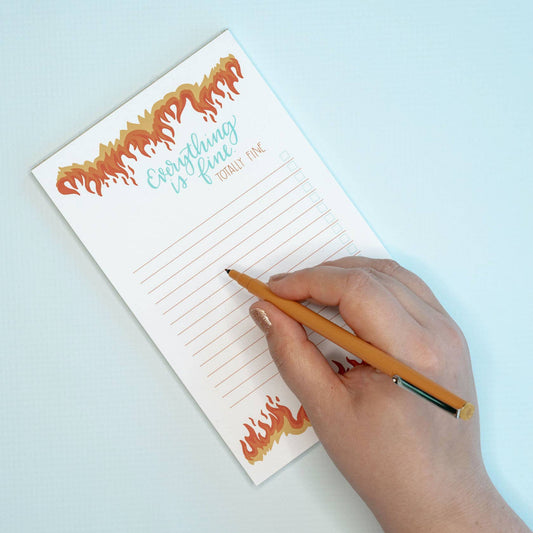 Everything
is fine
TOTALLY FINE